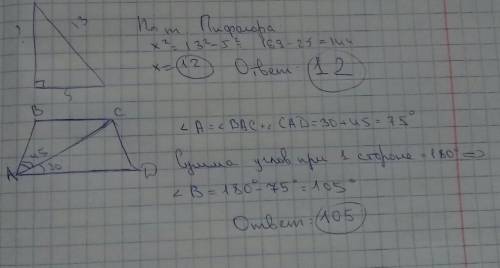 ? 13
По т. Пифагора
x² = 13² - 5² = 169 - 25 = 144
x = 12 Ответ: 12
5
B C
∠A = ∠BAC + CAD = 30 + 45 = 75°
45
A 30 D
Сумма углов при 1 стороне = 180° =>
∠B = 180° - 75° = 105°
Ответ: 105